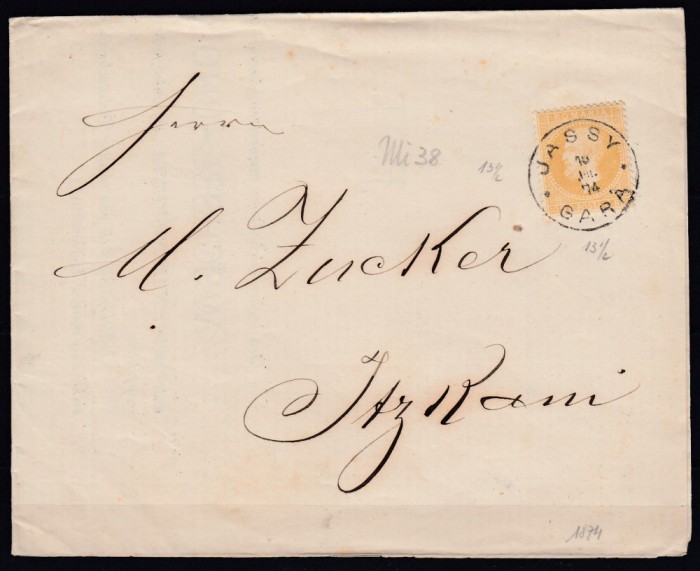 Herrn
Mi 38
13½
JASSY
10
JUL.
74
* GARA *
13½
M. Zucker
Itzkani
1874